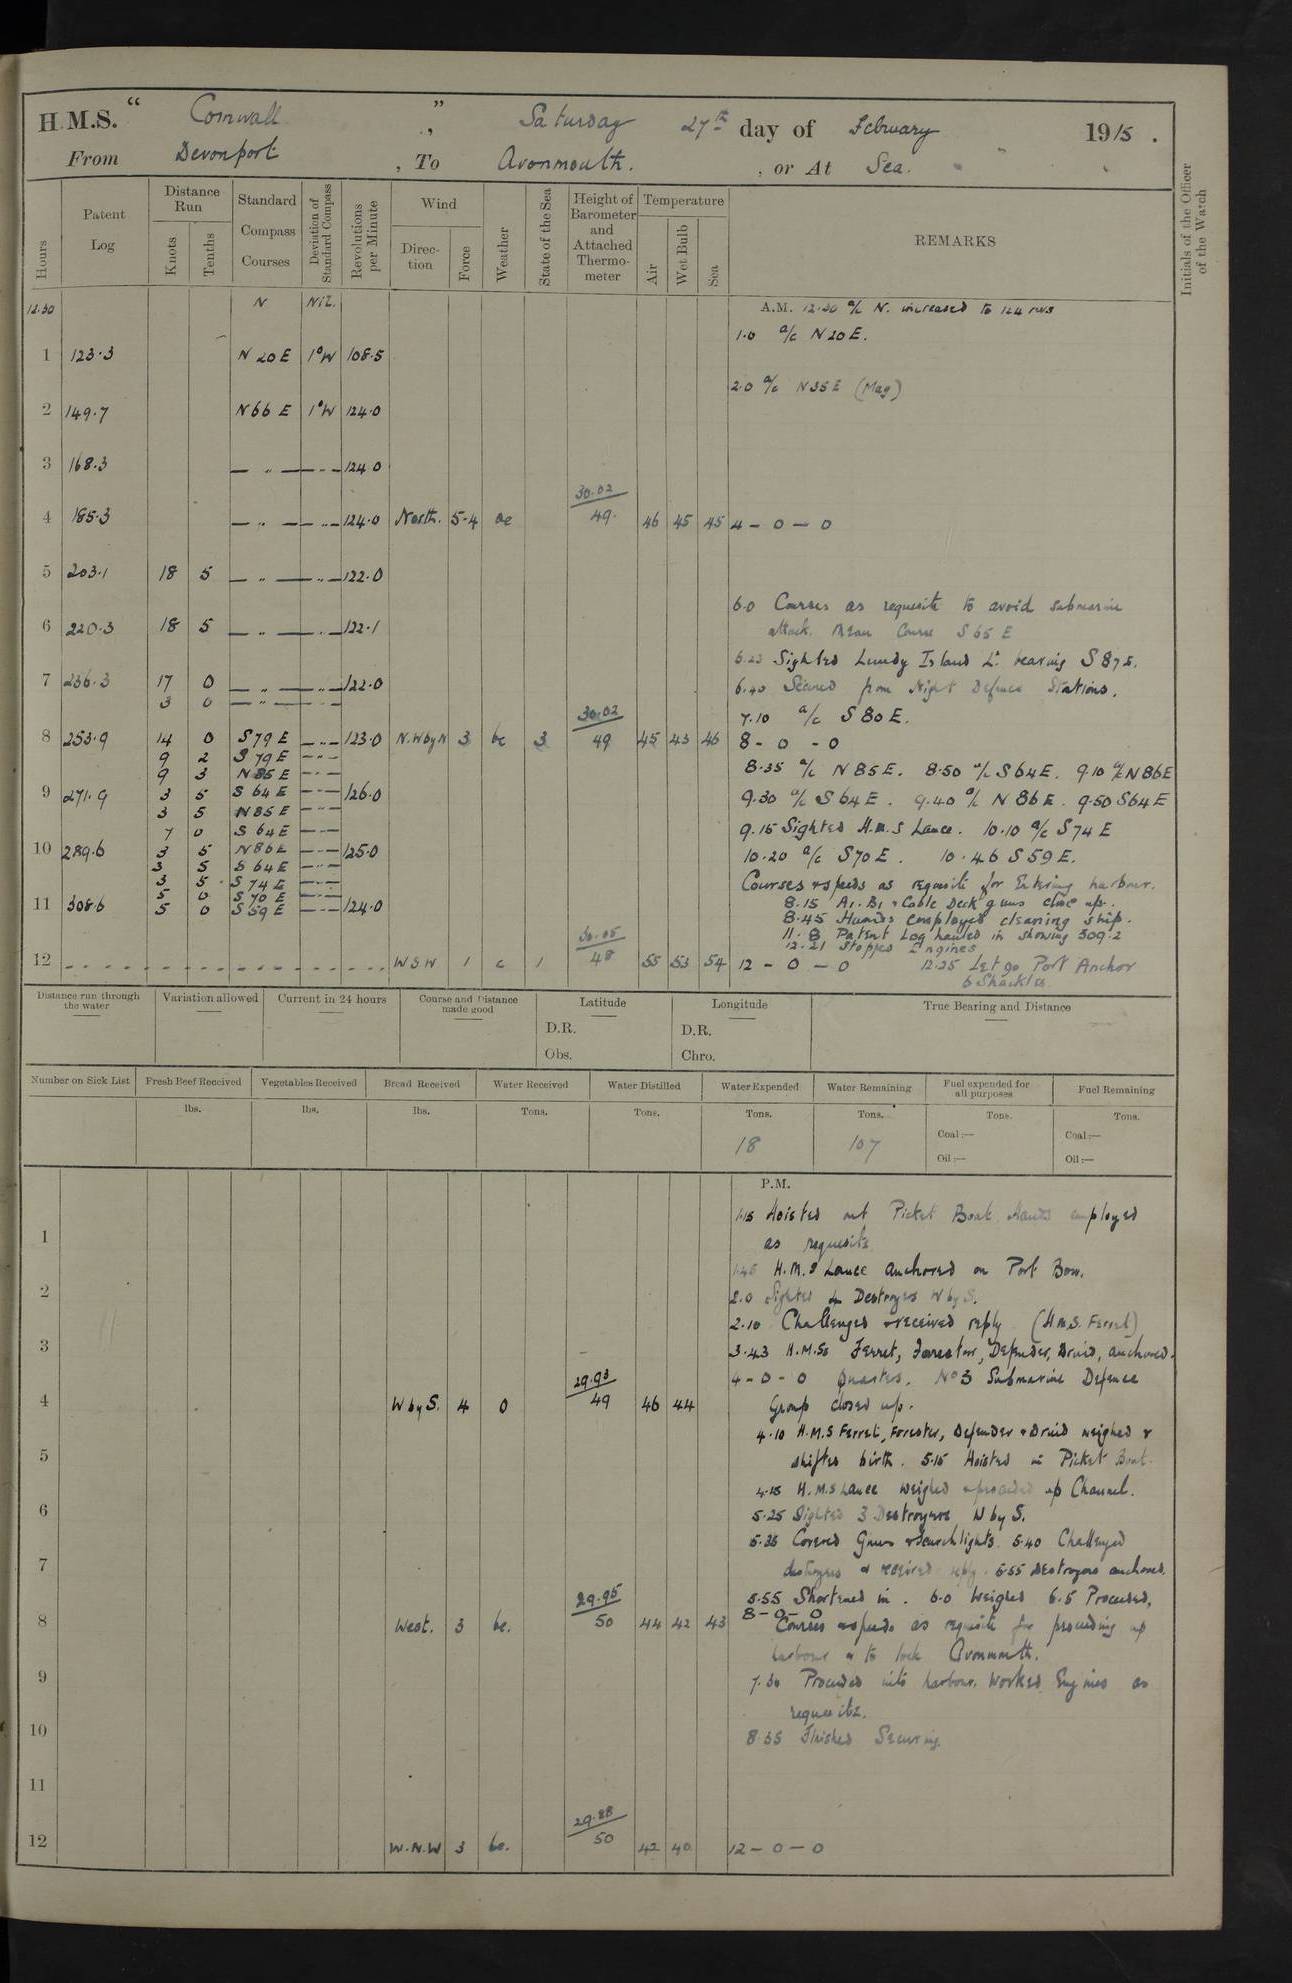 H.M.S. " Cornwall " , Saturday 27th day of February 1915 .
From Devonport , To Avonmouth. , or At Sea.
Hours
Patent Log
Distance Run
Knots
Tenths
Standard Compass Courses
Deviation of Standard Compass
Revolutions per Minute
Wind
Direction
Force
Weather
State of the Sea
Height of Barometer and Attached Thermometer
Temperature
Air
Wet Bulb
Sea
REMARKS
Initials of the Officer of the Watch
12.30 N Nil. A.M. 12.30 a/c N. increased to 124 revs
1.0 a/c N20E.
1 123.3 N 20 E 1°W 108.5
2.0 a/c N35E (Mag)
2 149.7 N66 E 1°W 124.0
3 168.3 — " — — " — 124.0
4 185.3 — " — — " — 124.0 North. 5-4 30.02 49. 46 45 45 4 – 0 – 0
5 203.1 18 5 — " — — " — 122.0
6.0 Courses as requisite to avoid submarine
6 220.3 18 5 — " — — " — 122.1
attack. Mean Course S65 E
6.23 Sighted Lundy Island Lt. bearing S87E.
7 236.3 17 0 — " — — " — 122.0
6.40 Secured from Night Defence Stations.
3 0 — " — — " —
7.10 a/c S80E.
8 253.9 14 0 S79E — " — 123.0 N.WbyN 3 bc 3 30.02 49 45 43 46 8 - 0 - 0
9 2 S 79E — " —
9 3 N85E — " —
8.35 a/c N85E. 8.50 a/c S64E. 9.10 a/c N86E
9 271.9 3 5 S 64E — " — 126.0
9.30 a/c S64E. 9.40 a/c N86E. 9.50 S64E
3 5 N85E — " —
7 0 S 64E — " —
9.15 Sighted H.M.S Lance. 10.10 a/c S74E
10 289.6 3 5 N86E — " — 125.0
10.20 a/c S70E. 10.46 S59E.
3 5 S 64E — " —
3 5 S 74E — " —
Courses & speeds as requisite for Entering harbour.
5 0 S 70E — " —
8.15 A1. B1 & Cable Deck guns close up.
11 308.6 5 0 S59E — " — 124.0
8.45 Hands employed cleaning ship.
11.8 Patent Log hauled in showing 309.2
12.21 Stopped Engines
12 WSW 1 c 1 30.05 48 55 53 54 12 – 0 – 0 12.25 Let go Port Anchor
6 Shackles
Distance run through the water
Variation allowed
Current in 24 hours
Course and Distance made good
Latitude
D.R.
Obs.
Longitude
D.R.
Chro.
True Bearing and Distance
Number on Sick List
Fresh Beef Received
lbs.
Vegetables Received
lbs.
Bread Received
lbs.
Water Received
Tons.
Water Distilled
Tons.
Water Expended
Tons.
18
Water Remaining
Tons.
107
Fuel expended for all purposes
Tons.
Coal:—
Oil:—
Fuel Remaining
Tons.
Coal:—
Oil:—
P.M.
1.15 Hoisted out Picket Boat. Hands employed
1
as requisite
1.45 H.M.S Lance anchored on Port Bow.
2
2.0 Sighted 4 Destroyers W by S.
2.10 Challenged & received reply (H.M.S. Ferret)
3
3.43 H.M.Ss Ferret, Forester, Defender, Druid, anchored.
4-0-0 Quarters. No 3 Submarine Defence
4 W by S. 4 0 29.93 49 46 44
Group closed up.
4.10 H.M.S Ferret, Forester, Defender & Druid weighed &
5
shifted birth. 5.15 Hoisted in Picket Boat.
4.15 H.M.S Lance weighed & proceeded up Channel.
6
5.25 Sighted 3 Destroyers W by S.
5.35 Covered Guns & Searchlights. 5.40 Challenged
7
destroyers & received reply. 5.55 Destroyers anchored.
5.55 Shortened in. 6.0 Weighed 6.5 Proceeded,
8 West. 3 bc. 29.95 50 44 42 43 8 – 0 – 0
Courses & speeds as requisite for proceeding up
harbour & to lock Avonmouth.
9
7.30 Proceeded into harbour. Worked Engines as
requisite.
10
8.35 Finished Securing.
11
12 W.N.W 3 bc. 29.88 50 42 40 12 – 0 – 0